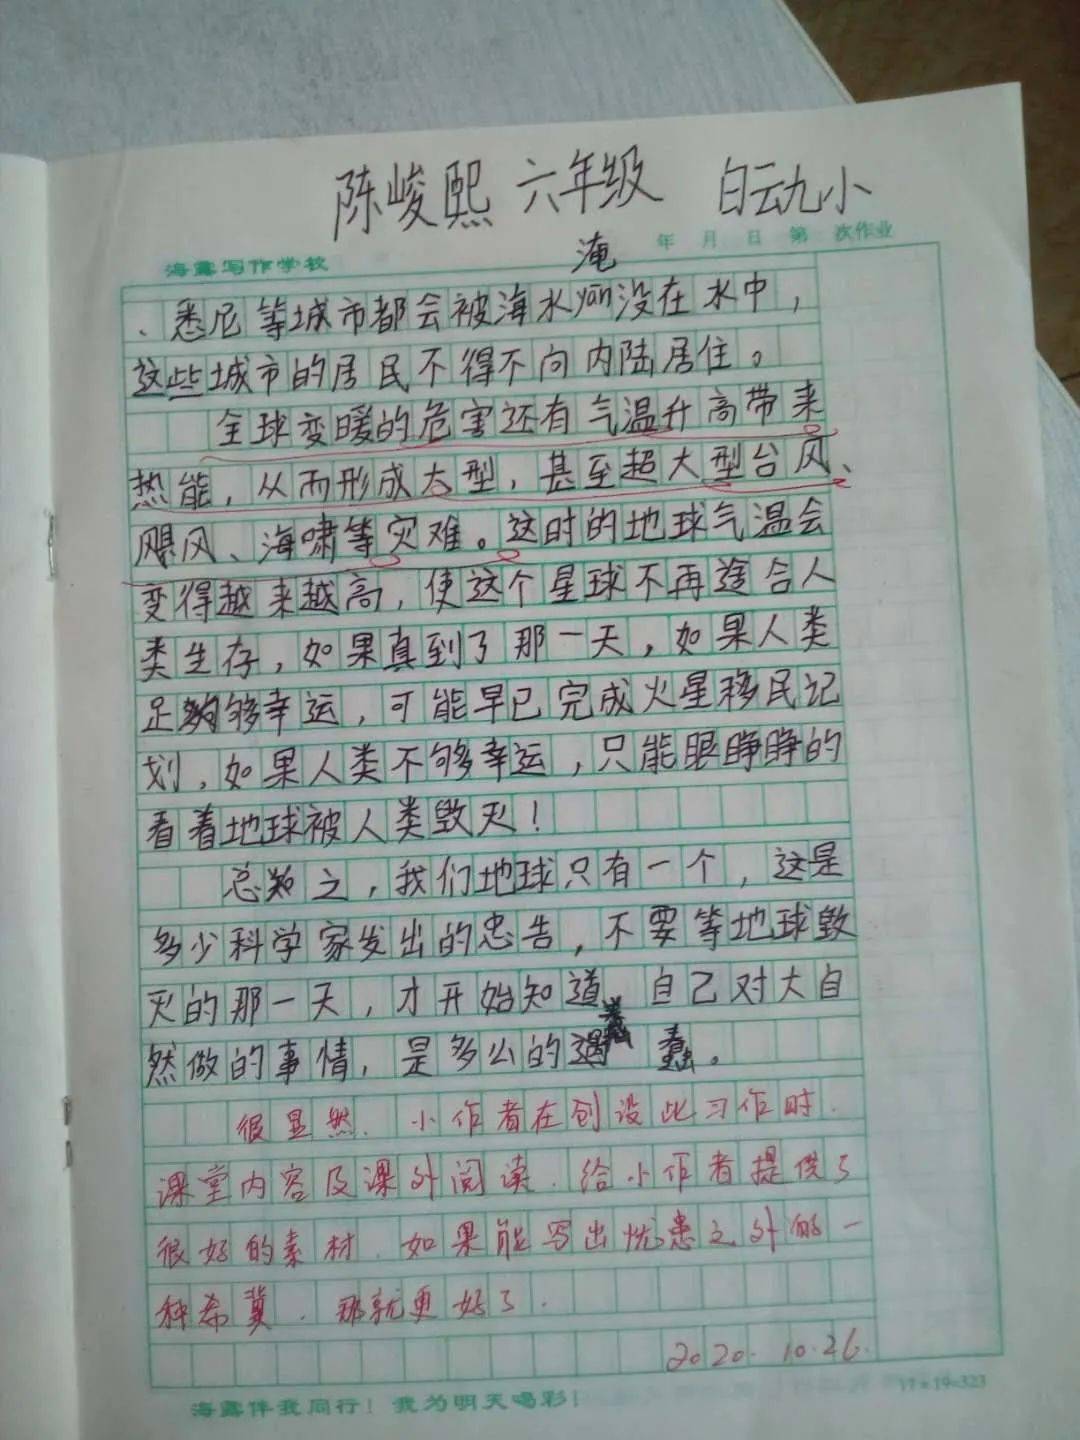 陈峻熙 六年级 白云九小
淹
年 月 日 第 次作业
海露写作学校
、悉尼等城市都会被海水yān没在水中，
这些城市的居民不得不向内陆居住。
全球变暖的危害还有气温升高带来
热能，从而形成大型，甚至超大型台风、
飓风、海啸等灾难。这时的地球气温会
变得越来越高，使这个星球不再适合人
类生存，如果真到了那一天，如果人类
足够幸运，可能早已完成火星移民记
划，如果人类不够幸运，只能眼睁睁的
看着地球被人类毁灭！
总之，我们地球只有一个，这是
多少科学家发出的忠告，不要等地球毁
灭的那一天，才开始知道 自己对大自
然做的事情，是多么的愚蠢。
很显然、小作者在创设此习作时.
课堂内容及课外阅读.给小作者提供了
很好的素材.如果能写出忧患之外的一
种希冀.那就更好了.
2020.10.26.
17×19=323
海露伴我同行！我为明天喝彩！